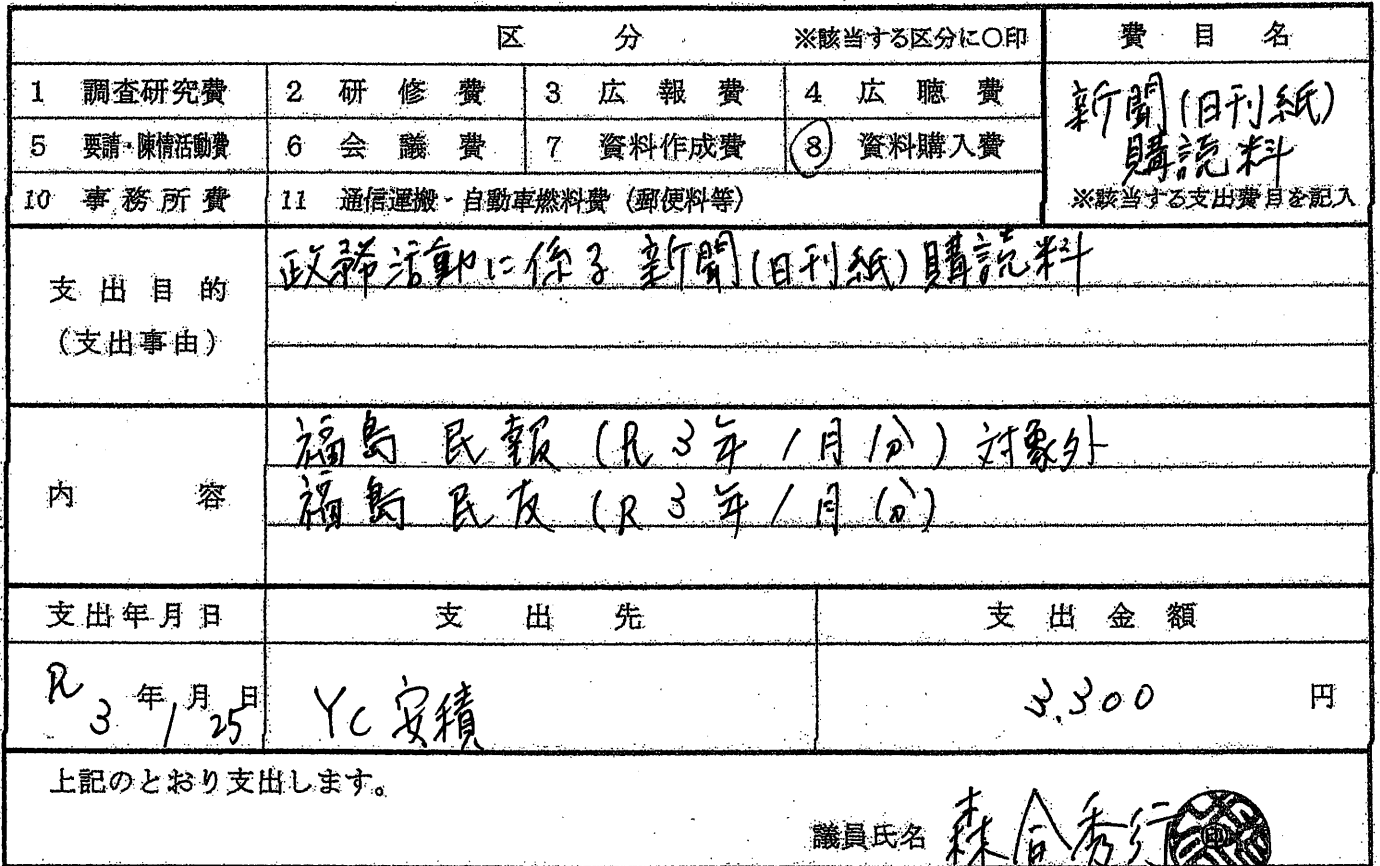 区 分 ※該当する区分に○印 費 目 名
1 調査研究費 2 研 修 費 3 広 報 費 4 広 聴 費
5 要請・陳情活動費 6 会 議 費 7 資料作成費 8 資料購入費
10 事務所費 11 通信運搬・自動車燃料費（郵便料等）
新聞(日刊紙)
購読料
※該当する支出費目を記入
支出目的
（支出事由）
政務活動に係る新聞(日刊紙)購読料
内 容
福島民報(R3年1月分)対象外
福島民友(R3年1月分)
支出年月日 支 出 先 支 出 金 額
R3年1月25日 YC安積 3,300 円
上記のとおり支出します。
議員氏名 森合秀行